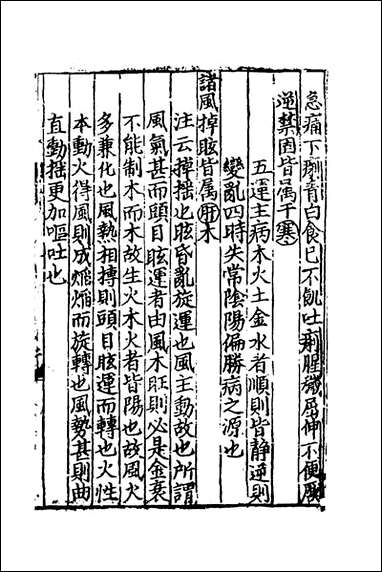 急痛下痢青白食已不飢吐痢腥穢屈伸不便厥
逆禁固皆属于寒
五運主病木火土金水者順則皆静逆則
變亂四時失常陰陽偏勝病之源也
諸風掉眩皆属肝木
注云掉揺也眩昏亂旋運也風主動故也所謂
風氣甚而頭目眩運者由風木旺則必是金衰
不能制木而木故生火木火者皆陽也故風火
多兼化也風熱相摶則頭目眩運而轉也火性
本動火得風則成熖熖而旋轉也風勢甚則曲
直動揺更加嘔吐也